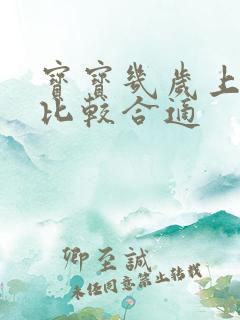 寶寶幾歲上
比較合適
卿至誠
未经同意禁止转载